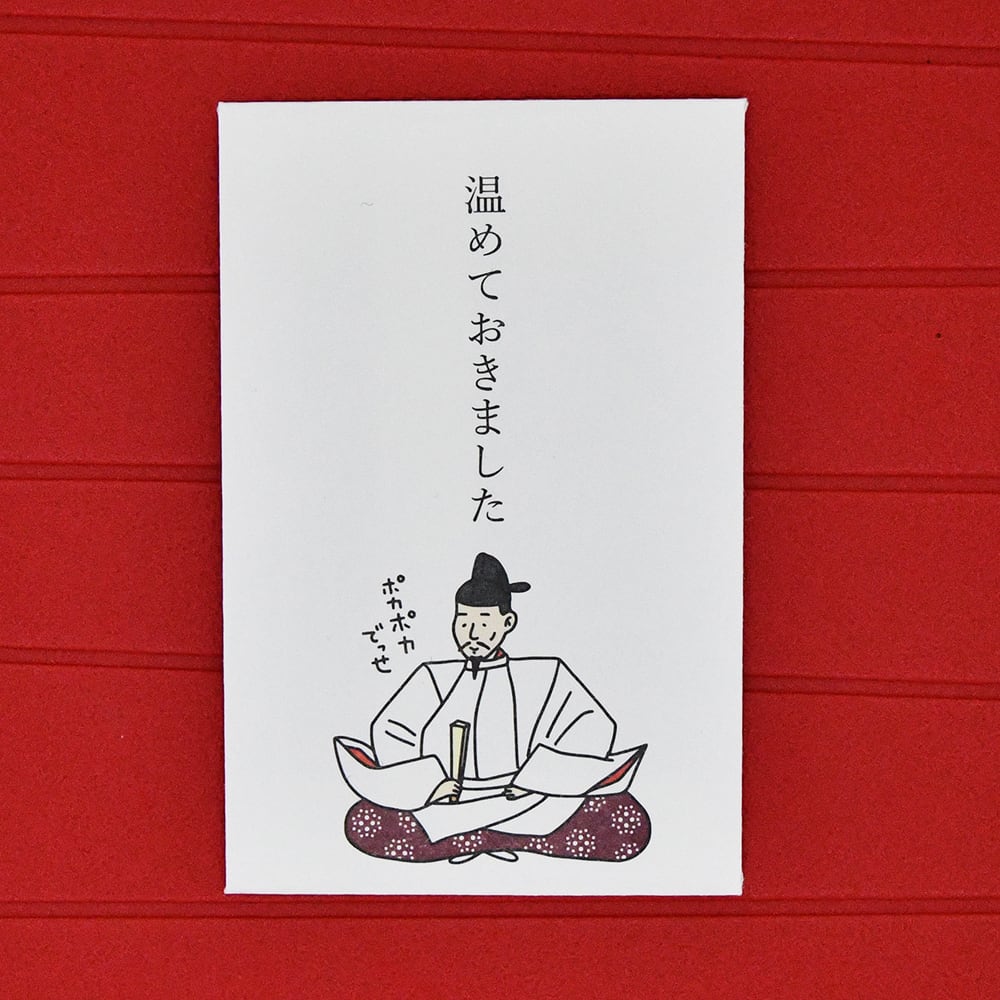 温めておきました
ポカポカ
でっせ